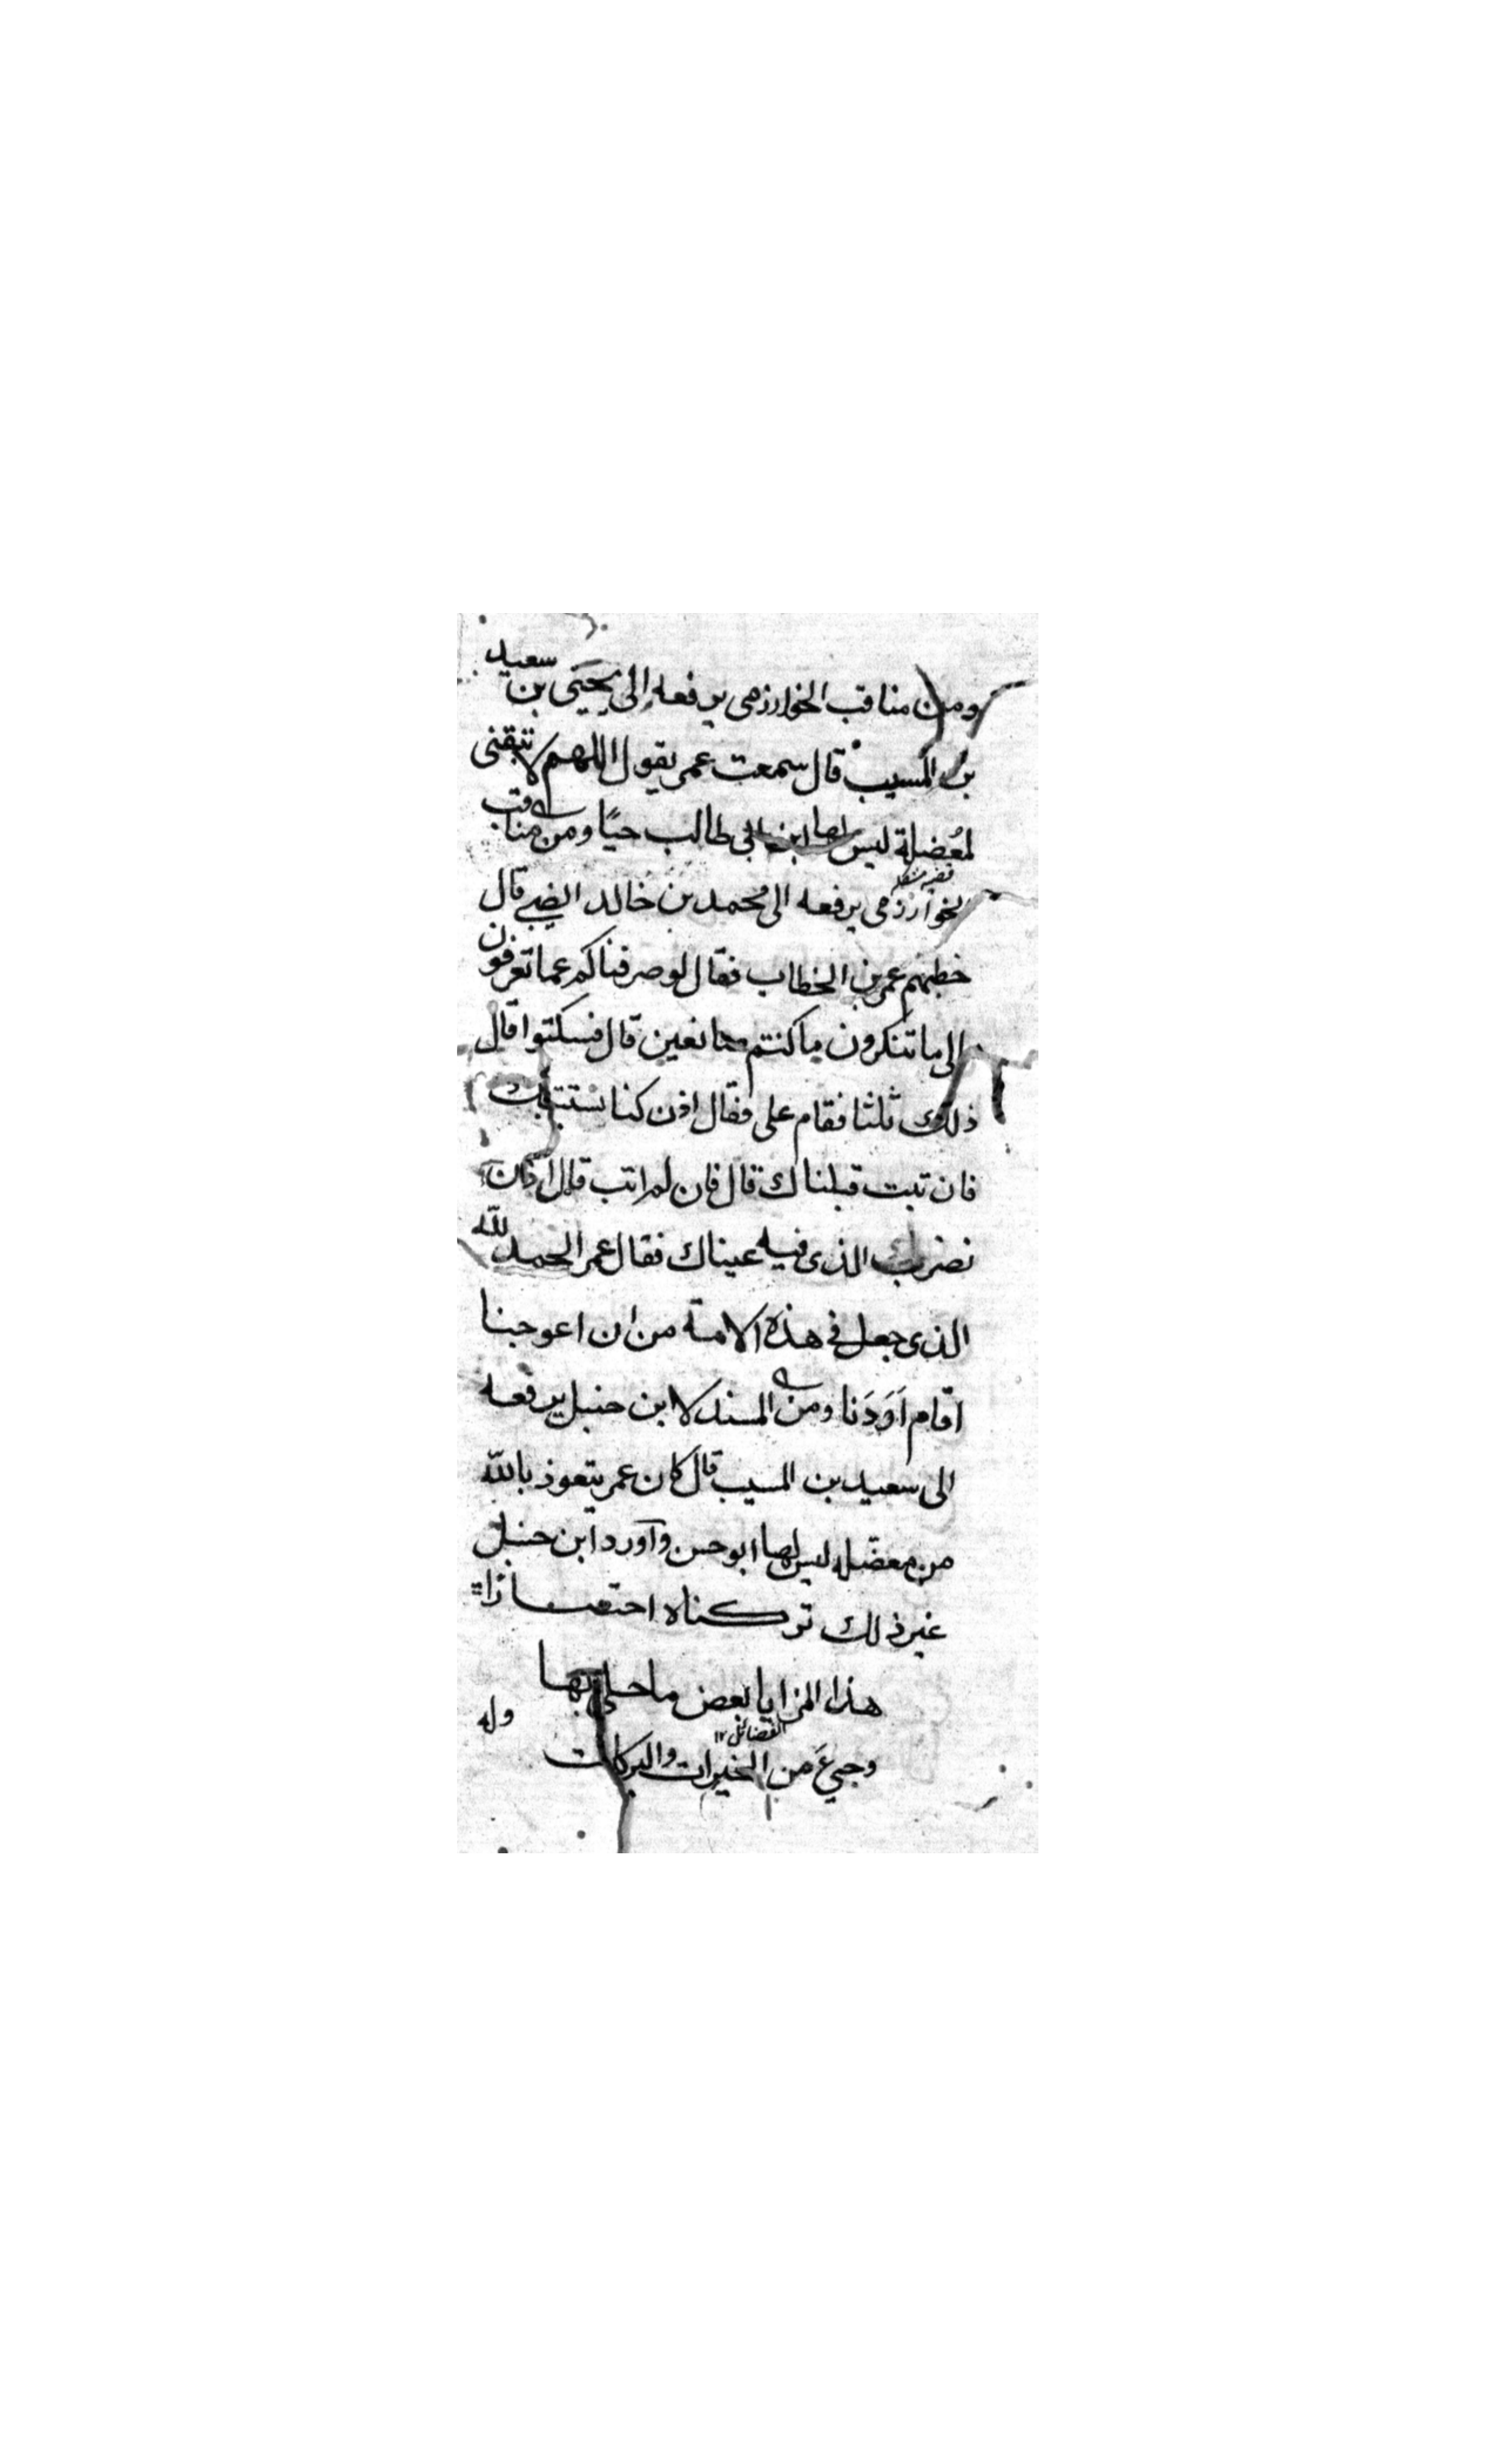 ومن مناقب الخوارزمى يرفعه الى يحيى بن سعيد
بن المسيب قال سمعت عمر يقول اللهم لا تبقنى
لمُعضلة ليس لها ابن ابى طالب حيًا ومن مناقب
الخوارزمى يرفعه الى محمد بن خالد الضبى قال
خطبهم عمر بن الخطاب فقال لو صرفناكم عما تعرفون
الى ما تنكرون ما كنتم صانعين قال فسكتوا قال
ذلك ثلثا فقام على فقال اذن كنا نستتيبك
فان تبت قبلناك قال فان لم اتب قال اذن
نضرب الذى فيه عيناك فقال عمر الحمد لله
الذى جعل فى هذه الامة من ان اعوججنا
اقام اَوَدَنا ومن المسند لابن حنبل يرفعه
الى سعيد بن المسيب قال كان عمر يتعوذ بالله
من معضلة ليس لها ابو حسن وآورد ابن حنبل
غير ذلك تركناه اختصارا
هذا المزايا بعض ما حلى بها
الفضائل ١٢
وجمع من الخيرات والبركات
وله